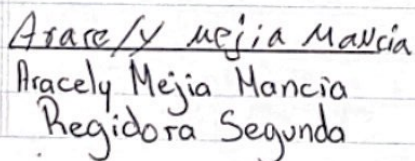 Aracely Mejia Mancia
Aracely Mejia Mancia
Regidora Segunda